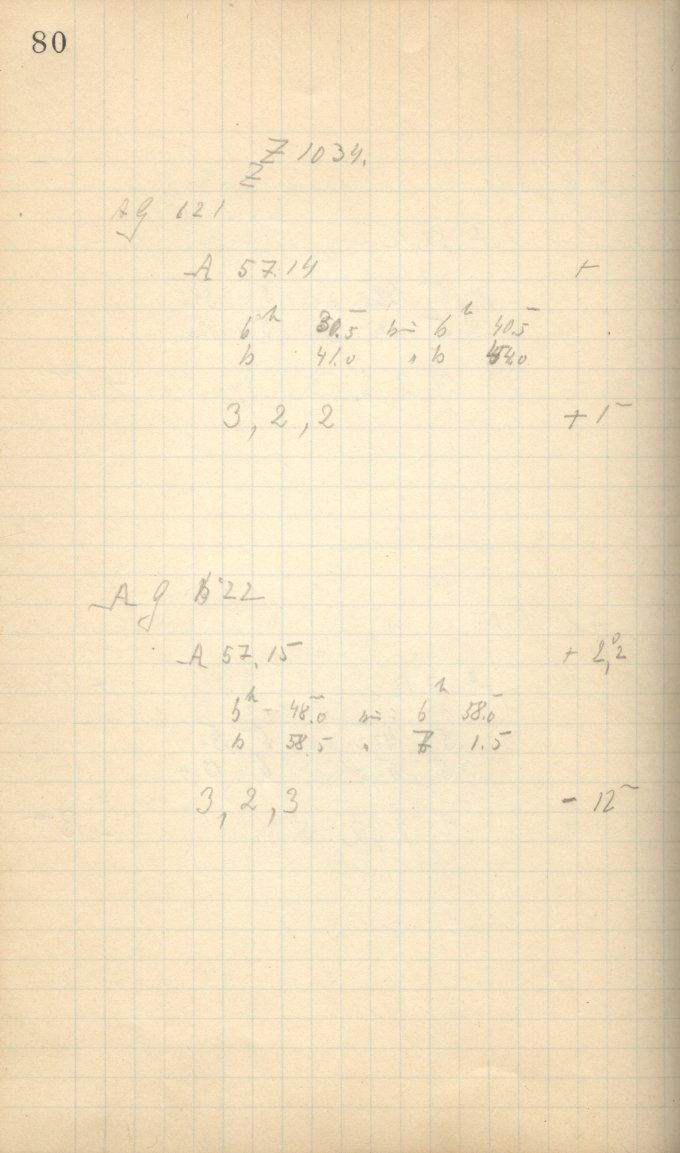 80
Z 1034.
Z
AG 121
A 57.14 +
6h 30.5 bis 6h 40.5
6 41.0 " 6 54.0
3, 2, 2 + 1m
AG 122
A 57.15 + 2,°2
6h 48.0 bis 6h 58.0
6 58.5 " 7 1.5
3, 2, 3 - 12m